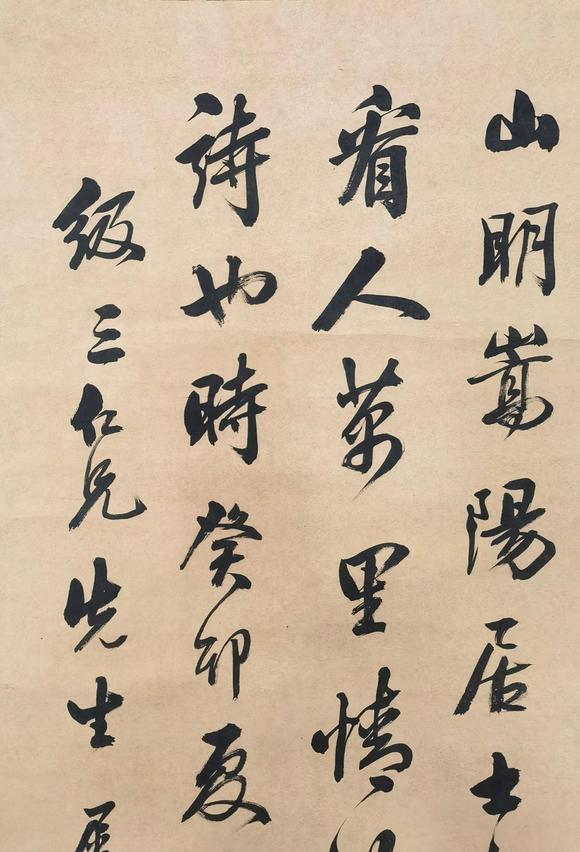 山明嵩陽居士
看人萬里情
詩也時癸卯夏
級三仁兄先生